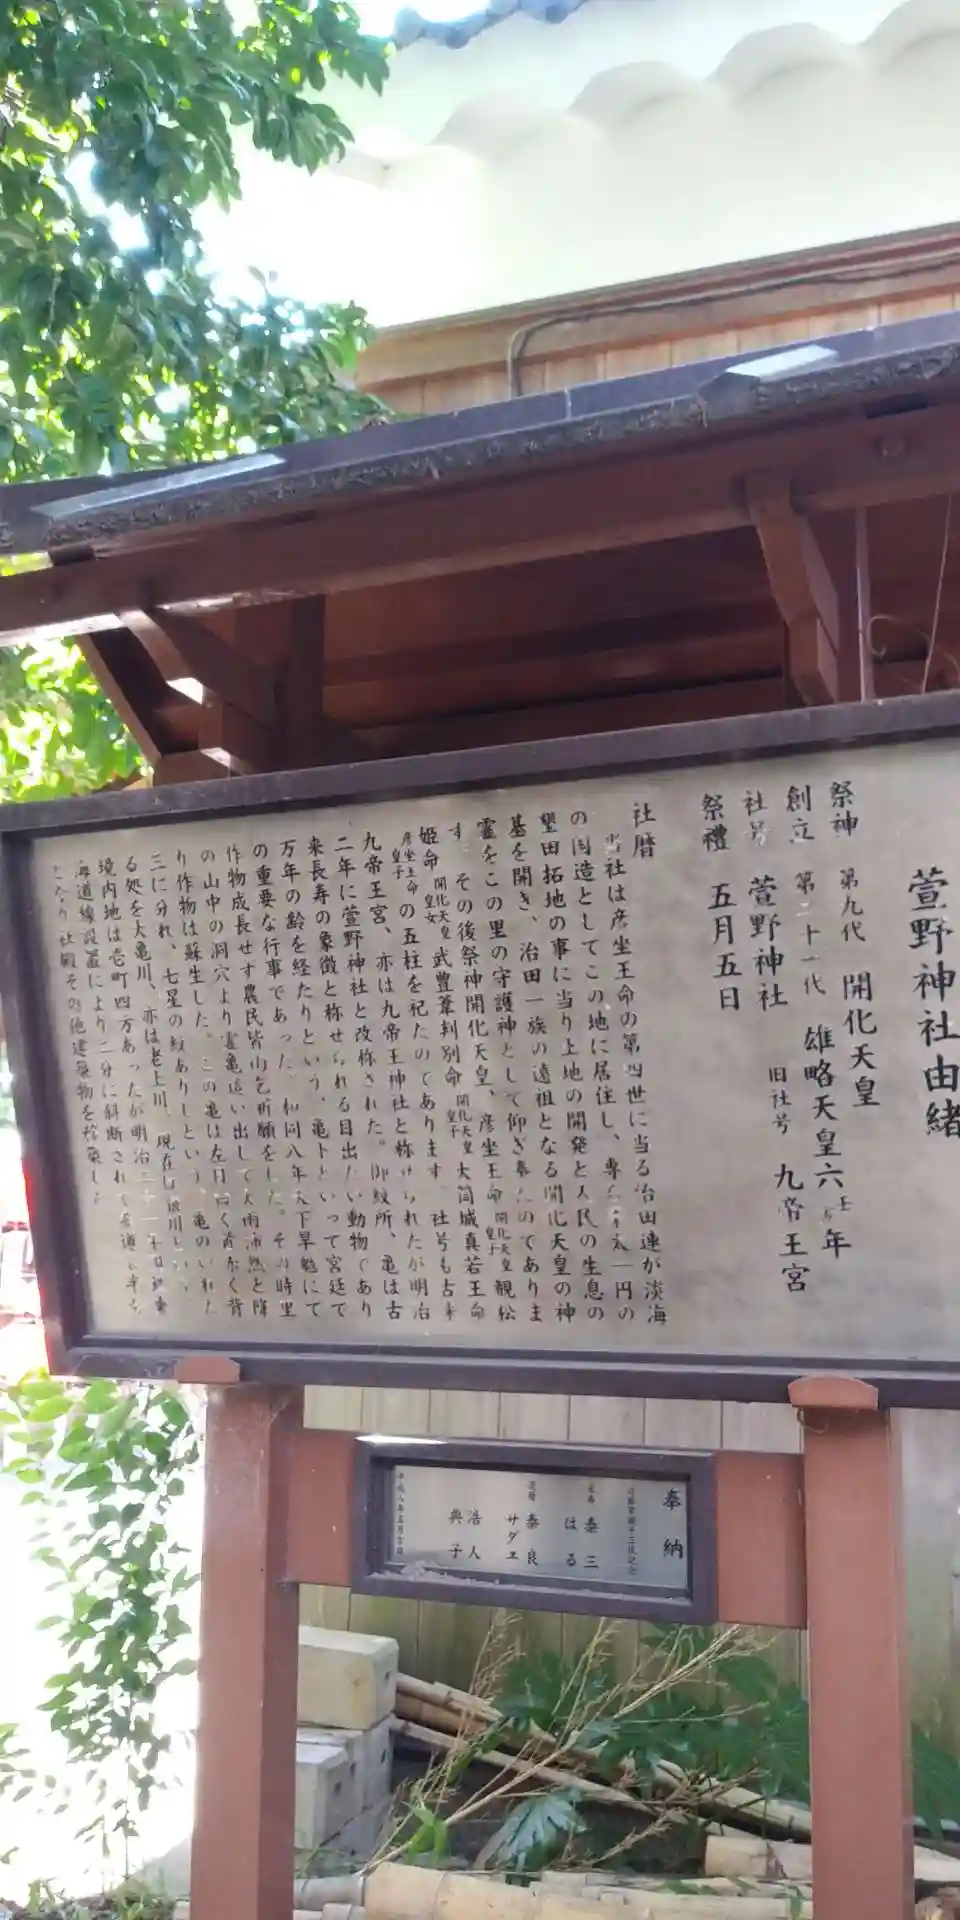 萱野神社由緒
祭神 第九代 開化天皇
創立 第二十一代 雄略天皇六壬年
社号 萱野神社 旧社号 九帝王宮
祭禮 五月五日
社暦
当社は彦坐王命の第四世に当る治田連が淡海
の国造としてこの地に居住し、専太一円の
墾田拓地の事に当り土地の開発と人民の生息の
基を開き、治田一族の遠祖となる開化天皇の神
霊をこの里の守護神として仰ぎ奉たのでありま
す。その後祭神開化天皇、彦坐王命 開化天皇皇子 観松
姫命 開化天皇皇女 武豊葦別別命 開化天皇皇子 大筒城真若王命
彦坐王命皇子 の五柱を祀たのであります。社号も古来
九帝王宮、亦は九帝王神社と称けられたが明治
二年に萱野神社と改称された。御紋所、亀は古
来長寿の象徴と称せられる目出たい動物であり
万年の齢を経たりという、亀卜といって宮廷で
の重要な行事であった。和同八年天下旱魃にて
作物成長せず農民皆雨乞祈願をした。その時里
の山中の洞穴より霊亀這い出して大雨沛然と降
り作物は蘇生した。この亀は左目白く右赤く背
三に分れ、七星の紋ありしという、亀のいれた
る処を大亀川、亦は老上川、現在
境内地は壱町四方あったが明治二十
海道線設置により二分に斜断されて
となり社殿その他建築物を移築した
奉納
泰三
はる
還暦 泰良
サダエ
浩人
典子
平成八年五月吉日